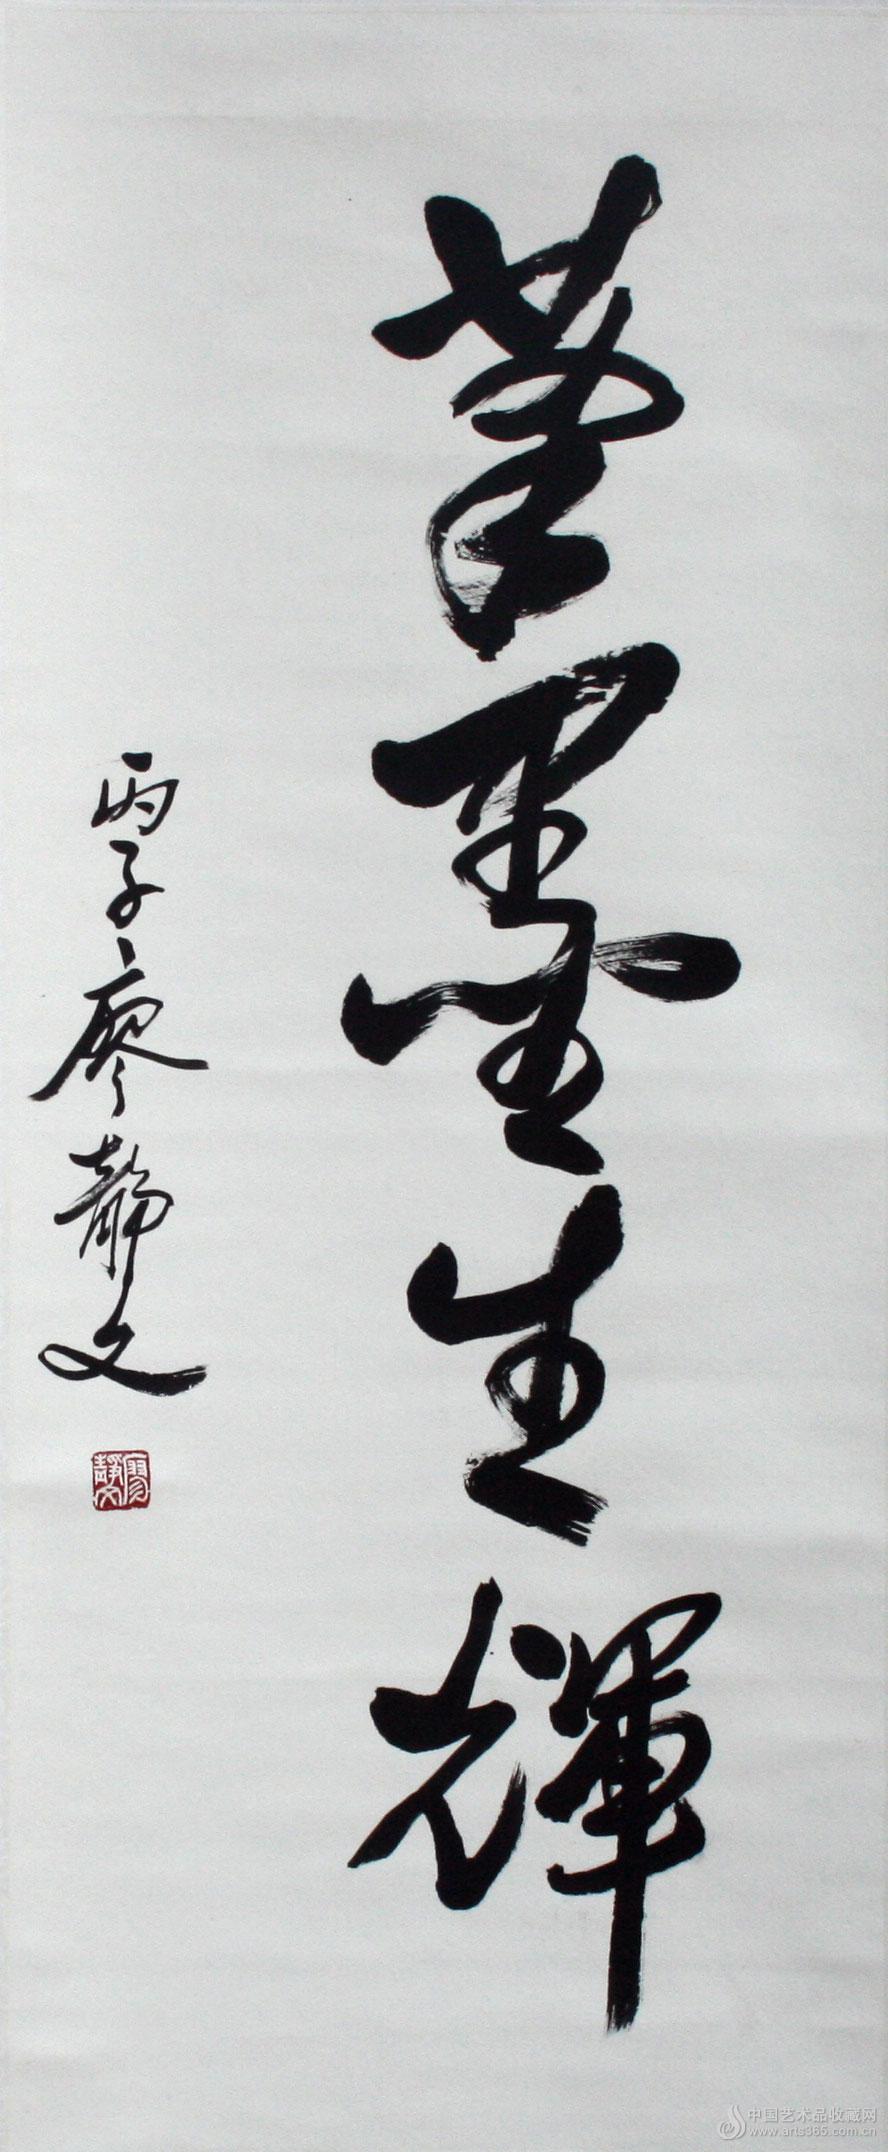 筆墨生輝
丙子廖静文
廖靜文
中国艺术品收藏网
www.arts365.com.cn